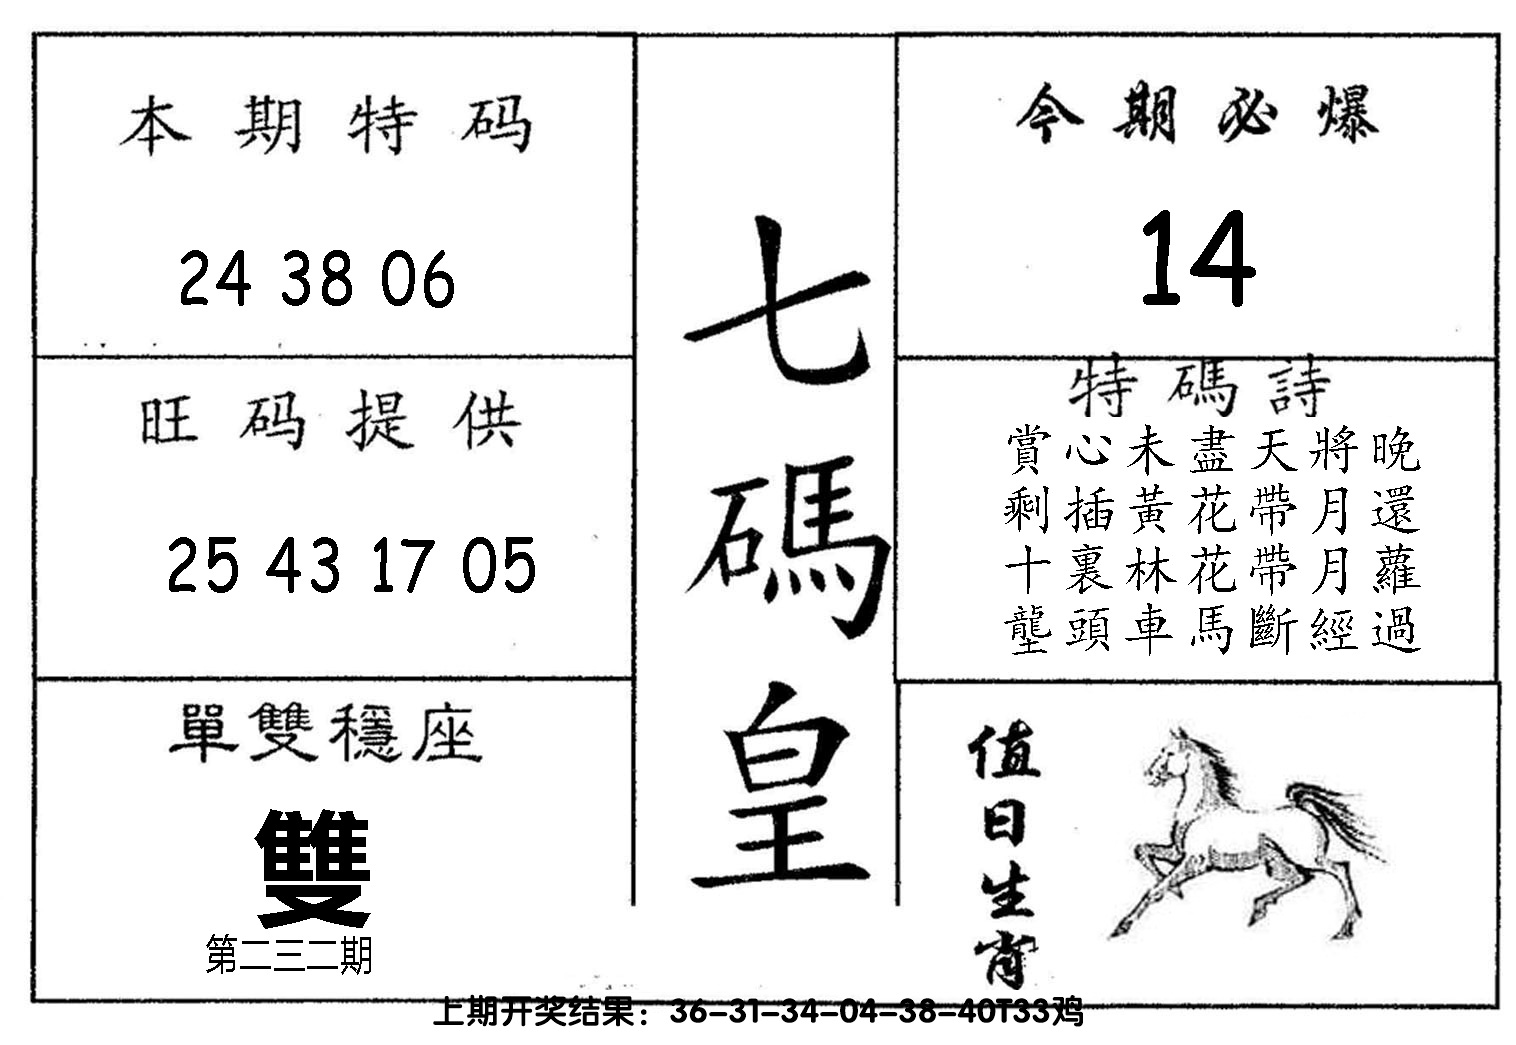 本期特码
24 38 06
旺码提供
25 43 17 05
單雙穩座
雙
第二三二期
七碼皇
今期必爆
14
特碼詩
賞心未盡天將晚
剩插黃花帶月還
十裏林花帶月蘿
壟頭車馬斷經過
值日生肖
上期开奖结果：36-31-34-04-38-40T33鸡